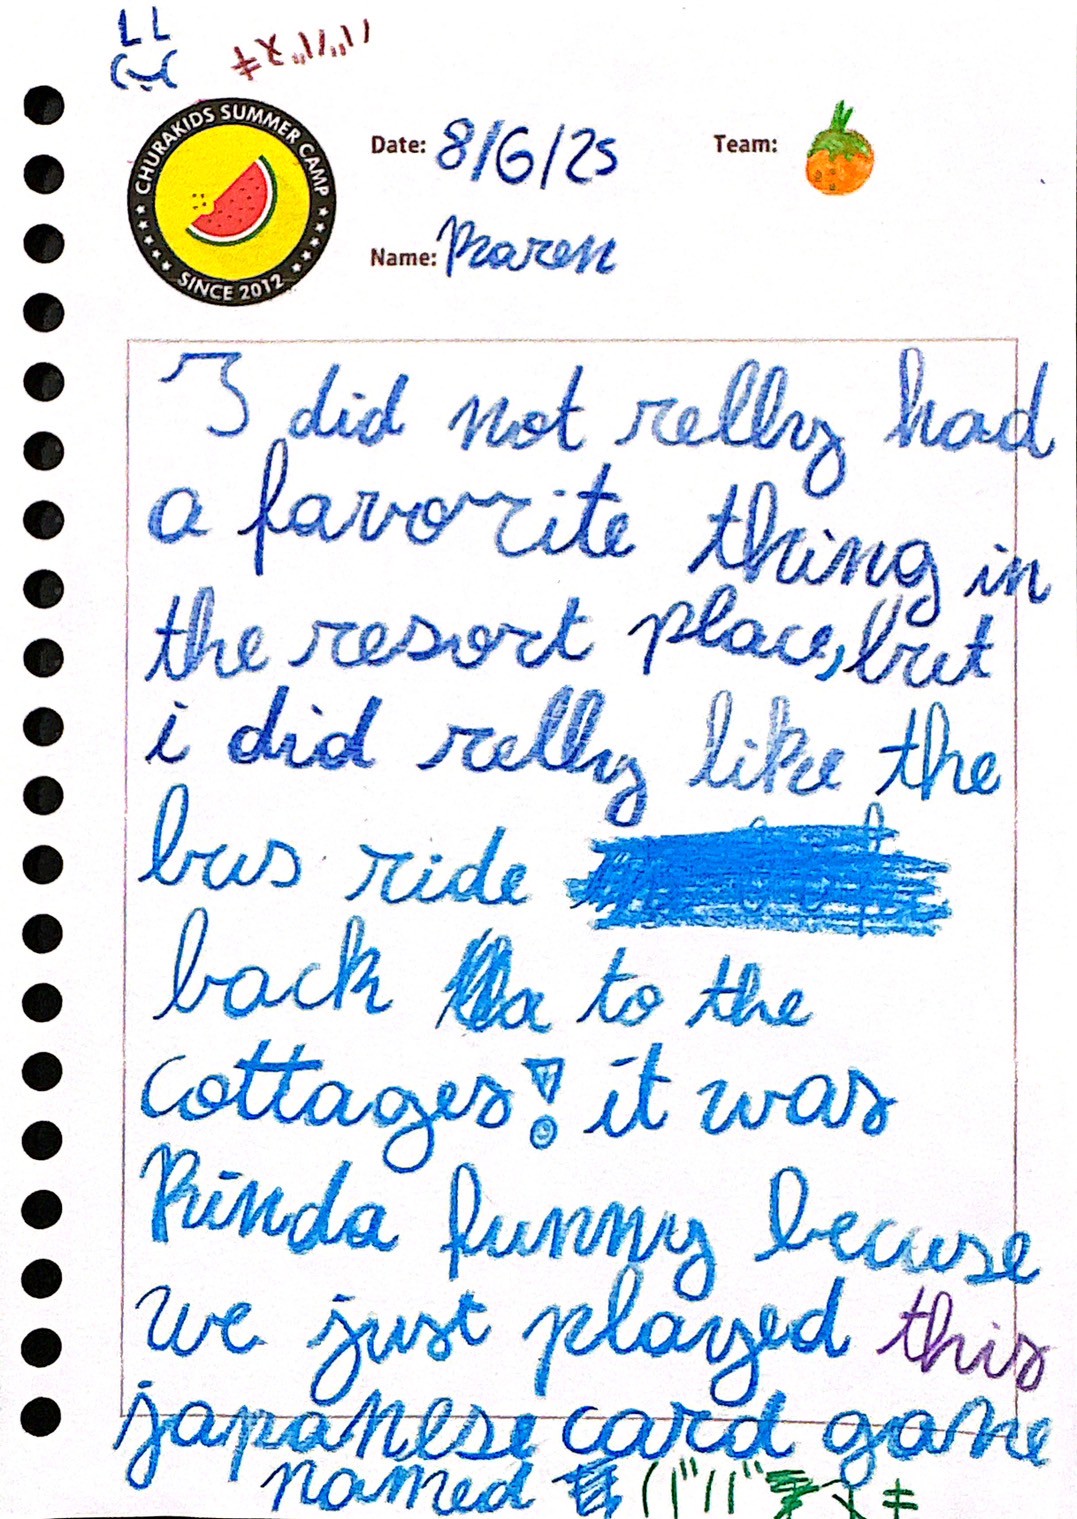 CHURAKIDS SUMMER CAMP
SINCE 2012
Date: 8/6/25
Team:
Name: Karen
I did not relly had
a favorite thing in
the resort place, but
i did relly like the
bus ride
back to the
cottages! it was
Kinda funny becuse
we just played this
japanese card game
named ババヌキ